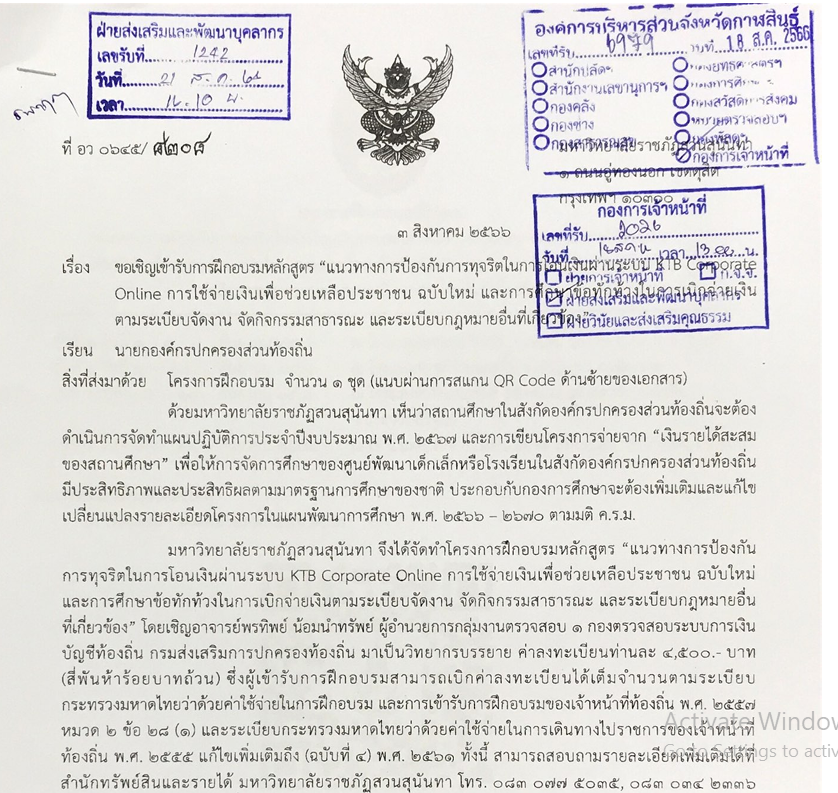 ฝ่ายส่งเสริมและพัฒนาบุคลากร
เลขรับที่ 1242
วันที่ 21 ส.ค. 66
เวลา 14.10 น.
องค์การบริหารส่วนจังหวัดกาฬสินธุ์
เลขที่รับ 6979 วันที่ 18 ส.ค. 2566
สำนักปลัดฯ
สำนักงานเลขานุการฯ
กองคลัง
กองช่าง
กองสาธารณสุข
กองยุทธศาสตร์ฯ
กองการศึกษาฯ
กองสวัสดิการสังคม
หน่วยตรวจสอบฯ
กองพัสดุฯ
กองการเจ้าหน้าที่
ที่ อว ๐๖๔๕/
มหาวิทยาลัยราชภัฏสวนสุนันทา
๑ ถนนอู่ทองนอก เขตดุสิต
กรุงเทพฯ ๑๐๓๐๐
กองการเจ้าหน้าที่
เลขที่รับ 2026
วันที่ เวลา น.
ฝ่ายการเจ้าหน้าที่ ก.จ.จ.
ฝ่ายส่งเสริมและพัฒนาบุคลากร
ฝ่ายวินัยและส่งเสริมคุณธรรม
๓ สิงหาคม ๒๕๖๖
เรื่อง ขอเชิญเข้ารับการฝึกอบรมหลักสูตร “แนวทางการป้องกันการทุจริตในการโอนเงินผ่านระบบ KTB Corporate
Online การใช้จ่ายเงินเพื่อช่วยเหลือประชาชน ฉบับใหม่ และการศึกษาข้อทักท้วงในการเบิกจ่ายเงิน
ตามระเบียบจัดงาน จัดกิจกรรมสาธารณะ และระเบียบกฎหมายอื่นที่เกี่ยวข้อง”
เรียน นายกองค์กรปกครองส่วนท้องถิ่น
สิ่งที่ส่งมาด้วย โครงการฝึกอบรม จำนวน ๑ ชุด (แนบผ่านการสแกน QR Code ด้านซ้ายของเอกสาร)
ด้วยมหาวิทยาลัยราชภัฏสวนสุนันทา เห็นว่าสถานศึกษาในสังกัดองค์กรปกครองส่วนท้องถิ่นจะต้อง
ดำเนินการจัดทำแผนปฏิบัติการประจำปีงบประมาณ พ.ศ. ๒๕๖๗ และการเขียนโครงการจ่ายจาก “เงินรายได้สะสม
ของสถานศึกษา” เพื่อให้การจัดการศึกษาของศูนย์พัฒนาเด็กเล็กหรือโรงเรียนในสังกัดองค์กรปกครองส่วนท้องถิ่น
มีประสิทธิภาพและประสิทธิผลตามมาตรฐานการศึกษาของชาติ ประกอบกับกองการศึกษาจะต้องเพิ่มเติมและแก้ไข
เปลี่ยนแปลงรายละเอียดโครงการในแผนพัฒนาการศึกษา พ.ศ. ๒๕๖๖ – ๒๖๗๐ ตามมติ ค.ร.ม.
มหาวิทยาลัยราชภัฏสวนสุนันทา จึงได้จัดทำโครงการฝึกอบรมหลักสูตร “แนวทางการป้องกัน
การทุจริตในการโอนเงินผ่านระบบ KTB Corporate Online การใช้จ่ายเงินเพื่อช่วยเหลือประชาชน ฉบับใหม่
และการศึกษาข้อทักท้วงในการเบิกจ่ายเงินตามระเบียบจัดงาน จัดกิจกรรมสาธารณะ และระเบียบกฎหมายอื่น
ที่เกี่ยวข้อง” โดยเชิญอาจารย์พรทิพย์ น้อมนำทรัพย์ ผู้อำนวยการกลุ่มงานตรวจสอบ ๑ กองตรวจสอบระบบการเงิน
บัญชีท้องถิ่น กรมส่งเสริมการปกครองท้องถิ่น มาเป็นวิทยากรบรรยาย ค่าลงทะเบียนท่านละ ๔,๕๐๐.- บาท
(สี่พันห้าร้อยบาทถ้วน) ซึ่งผู้เข้ารับการฝึกอบรมสามารถเบิกค่าลงทะเบียนได้เต็มจำนวนตามระเบียบ
กระทรวงมหาดไทยว่าด้วยค่าใช้จ่ายในการฝึกอบรม และการเข้ารับการฝึกอบรมของเจ้าหน้าที่ท้องถิ่น พ.ศ. ๒๕๕๗
หมวด ๒ ข้อ ๒๘ (๑) และระเบียบกระทรวงมหาดไทยว่าด้วยค่าใช้จ่ายในการเดินทางไปราชการของเจ้าหน้าที่
ท้องถิ่น พ.ศ. ๒๕๕๕ แก้ไขเพิ่มเติมถึง (ฉบับที่ ๔) พ.ศ. ๒๕๖๑ ทั้งนี้ สามารถสอบถามรายละเอียดเพิ่มเติมได้ที่
สำนักทรัพย์สินและรายได้ มหาวิทยาลัยราชภัฏสวนสุนันทา โทร. ๐๘๓ ๐๗๗ ๕๐๓๕, ๐๘๓ ๐๓๔ ๒๓๓๖
Activate Window
Go to Settings to activ